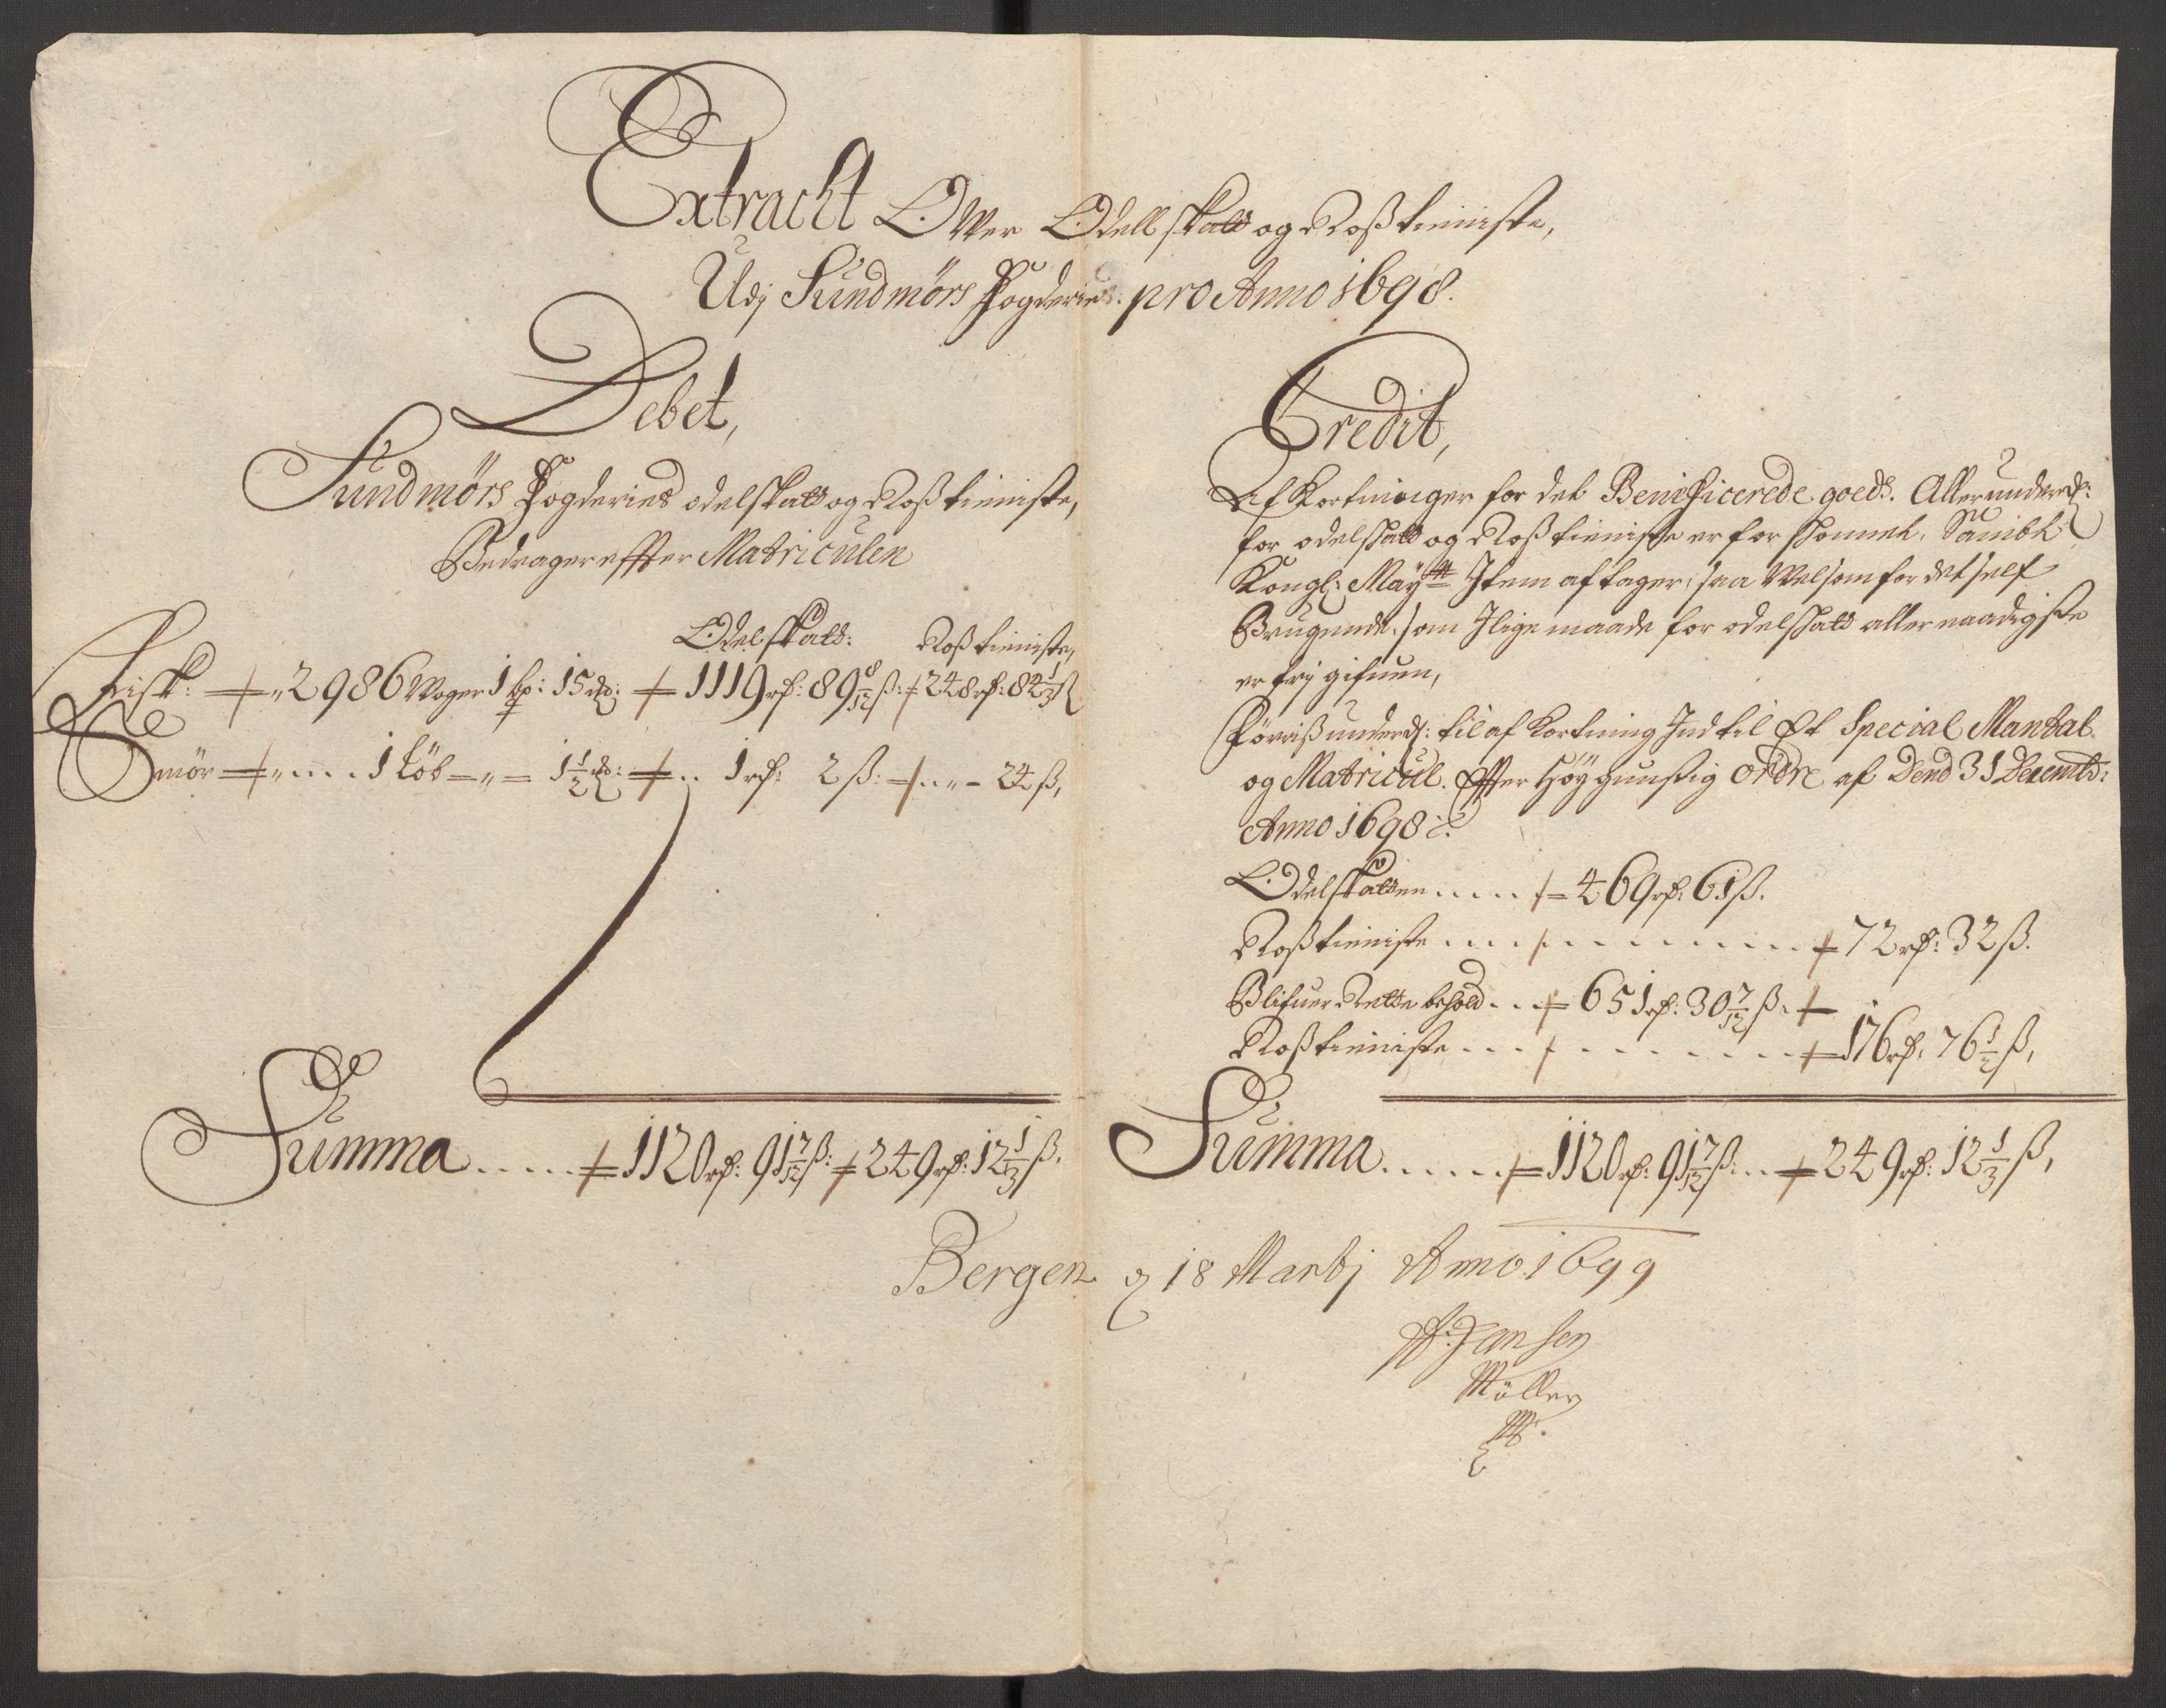 Extracht Ofver Odellskatt og Rostieniste,
Udj Sundmörs Fogderie pro Anno 1698.
Debet,
Sundmörs Fogderies odelskatt og Rostieniste,
Bedrager effter Matriculen
Odelskatt: Rostieniste,
Fisk: 2986 Woger 1 bp: 15 1119 rd: 89 8/12 ß: 248 rd: 84 1/3 ß
Smör 1 Löb 1 1/2 1 rd: 2 ß: 24 ß,
Summa 1120 rd: 91 7/12 ß: 249 rd: 12 1/3 ß.
Credit,
Afkortninger for det Benificerede goeds. Aller underd:
for odelskatt og Rostieniste er forskonnet, Sambt
Kongl: Maytt Item aftager, saa Velsom for det self
Brugende, som Ilige maade for odelskatt aller naadigste
er frj gifuen,
Förris underd: til afkortning Indtil Et Special Mantal
og Matricul. Effter Höygunstig Ordre af Dend 31 Decembr:
Anno 1698
Odelskatten 469 rd: 61 ß.
Rostieniste 72 rd: 32 ß.
Blifuer Rette behold 651 rd: 30 7/12 ß.
Rostieniste 176 rd: 76 1/3 ß,
Summa 1120 rd: 91 7/12 ß 249 rd: 12 1/3 ß,
Bergen d 18 Martj Anno 1699
Jansen
Möller